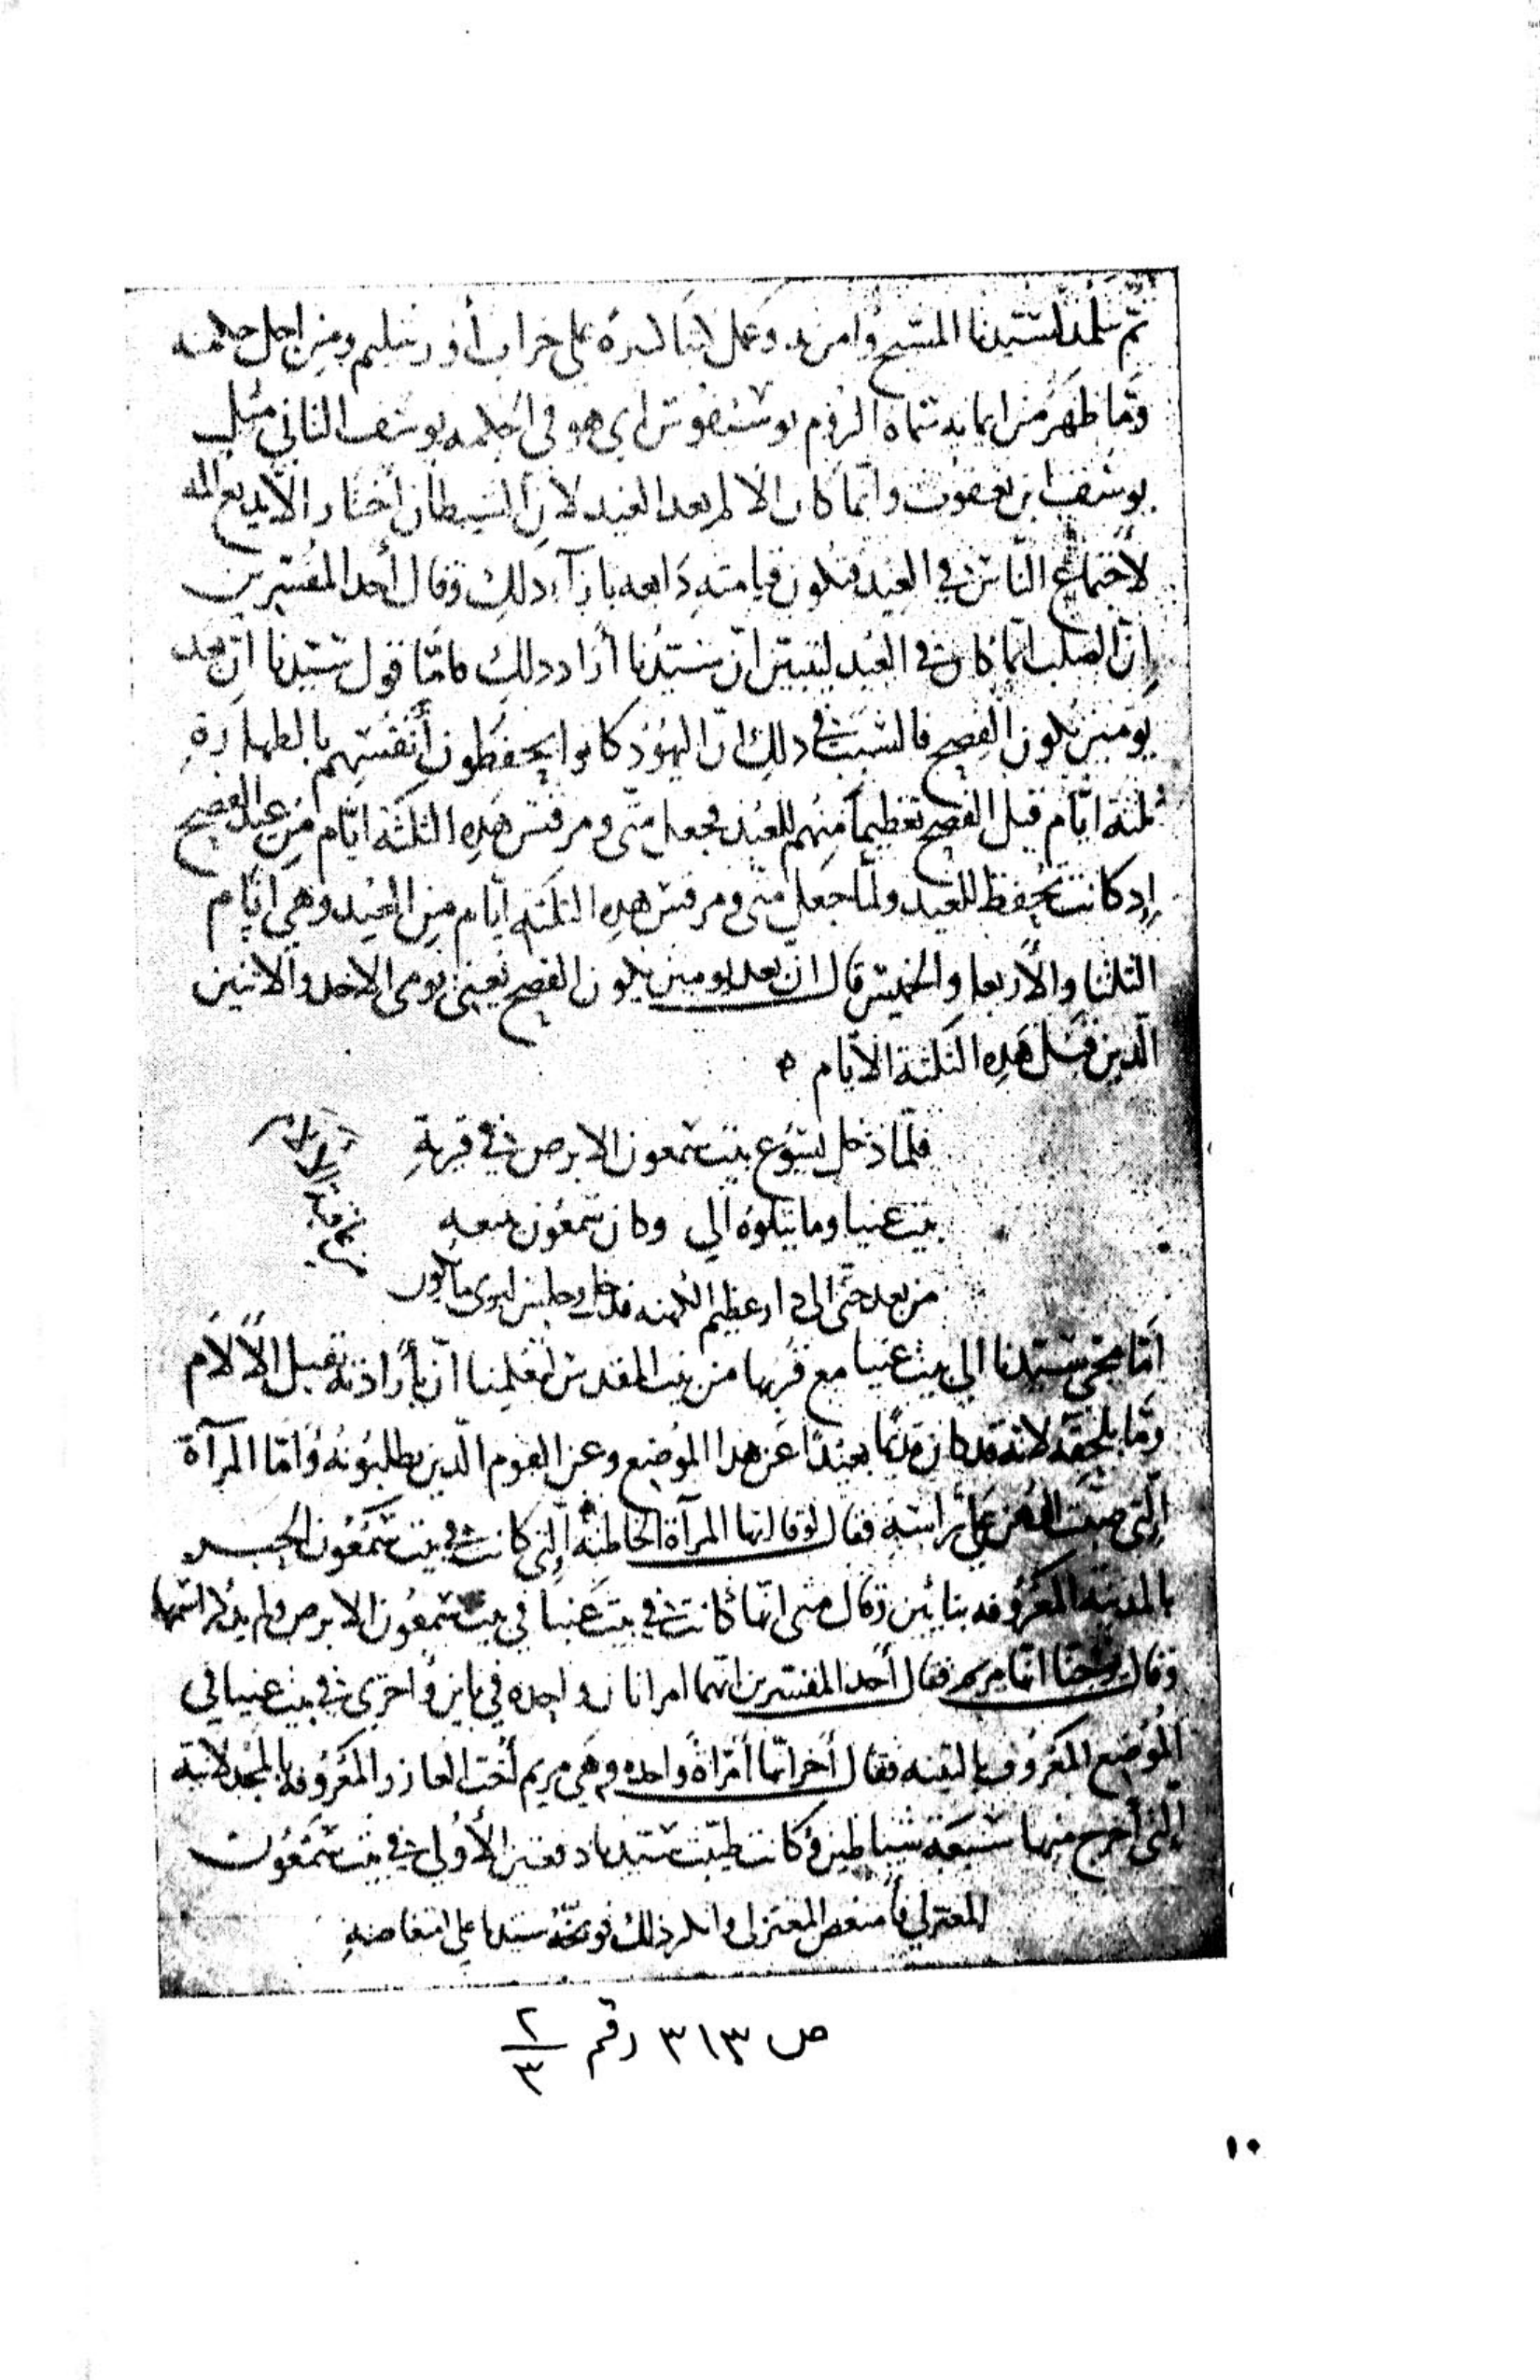 ثم تلمذ لسيدنا المسيح وامن به وعمل كتبا كثيرة على خراب أورشليم ومن اجل حكمته
وما ظهر من ايمانه سماه الروم يوسيفوس اي هو في الحكمه يوسف الثاني مثل
يوسف ابن يعقوب وانما كان الالم بعد العيد لأن الشيطان اختار الا يذيع الله
لاجتماع الناس في العيد فتكون قيامته ذايعه بازآء ذلك وقال أحد المفسرين
إن الصلب انما كان في العيد ليتبين ان سيدنا أراد ذلك فاما قول سيدنا ان بعد
يومين يكون الفصح فالسبب في ذلك ان اليهود كانوا يحفظون أنفسهم بالطهارة
ثلثة ايام قبل الفصح تعظيما منهم للعيد فجعل متى ومرقس هذه الثلثة ايام من عيد الفصح
إذ كانت تحفظ للعيد ولما جعل متى ومرقس هذه الثلثة أيام من العيد وهي ايام
الثلثا والأربعا والخميس قال ان بعد يومين يكون الفصح يعني يومي الاحد والاثنين
الذين قبل هذه الثلثة الأيام ه
فلما دخل يسوع بيت سمعون الابرص في قرية
بيت عنيا وما يتلوه الي وكان سمعون يتبعه
من بعد حتى الى دار عظيم الكهنه فدخل وجلس ليرى ما يكون
أما مجي سيدنا الي بيت عنيا مع قربها من بيت المقدس ليعلمنا أن بأرادته تقبل الآلام
وما يلحقه لانه قد كان قديما بعيدا عن هذا الموضع وعن القوم الذين يطلبونه وأما المرآة
التي صبت الدهن على رأسه فقال لوقا انها المرآة الخاطئه التي كانت في بيت سمعون الحبر
بالمدينه المعروفه بنائين وقال متى انها كانت في بيت عنيا في بيت سمعون الابرص ولم يذكر اسمها
وقال يوحنا انها مريم فقال أحد المفسرين انهما امرأتان واحده في ناين وأخرى في بيت عنيا في
الموضع المعروف بالتينه فقال أخر انها أمرأة واحده وهي مريم أخت العازر المعروفه بالمجدلانية
التي أخرج منها سبعة شياطين وكانت طيبت سيدنا دفعتين الأولى في بيت سمعون
المعتزلي فأمتعض المعتزلي وانكر ذلك فوبخه سيدنا على امتعاضه
ص ٣١٣ رقم ٢/٣
١٠